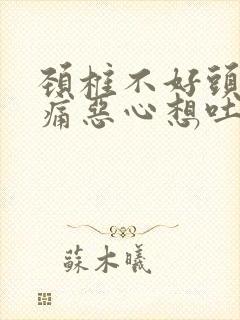 頚椎不好頭
痛惡心想吐
蘇木曦